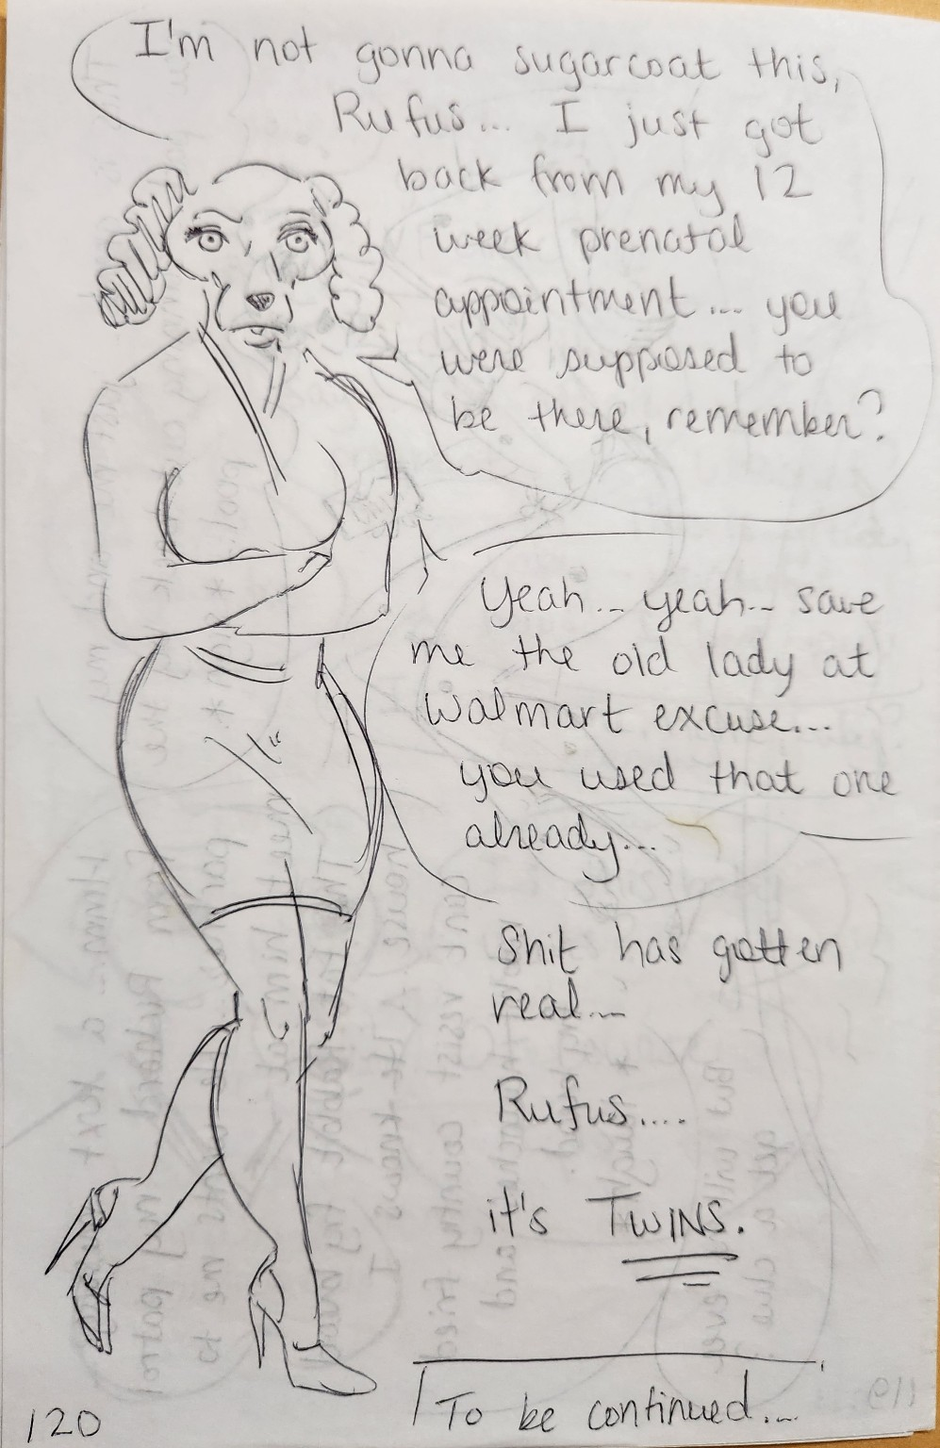 I'm not gonna sugarcoat this,
Rufus... I just got
back from my 12
week prenatal
appointment... you
were supposed to
be there, remember?
Yeah... yeah... save
me the old lady at
Walmart excuse...
you used that one
already...
Shit has gotten
real...
Rufus....
it's TWINS.
To be continued...
120